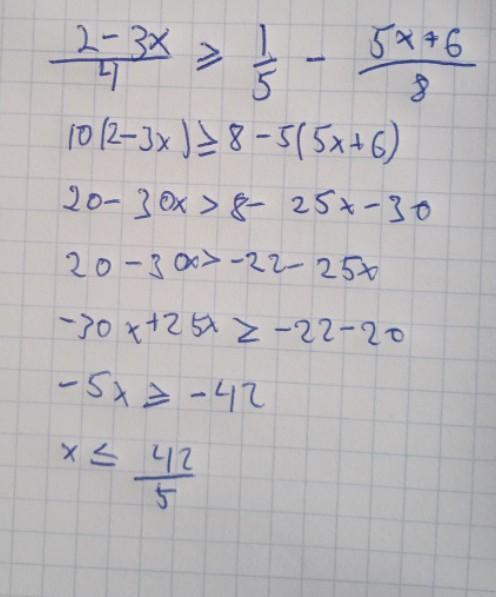 (2-3x)/4 ≥ 1/5 - (5x+6)/8
10(2-3x) ≥ 8-5(5x+6)
20-30x > 8- 25x-30
20-30x > -22-25x
-30x+25x ≥ -22-20
-5x ≥ -42
x ≤ 42/5